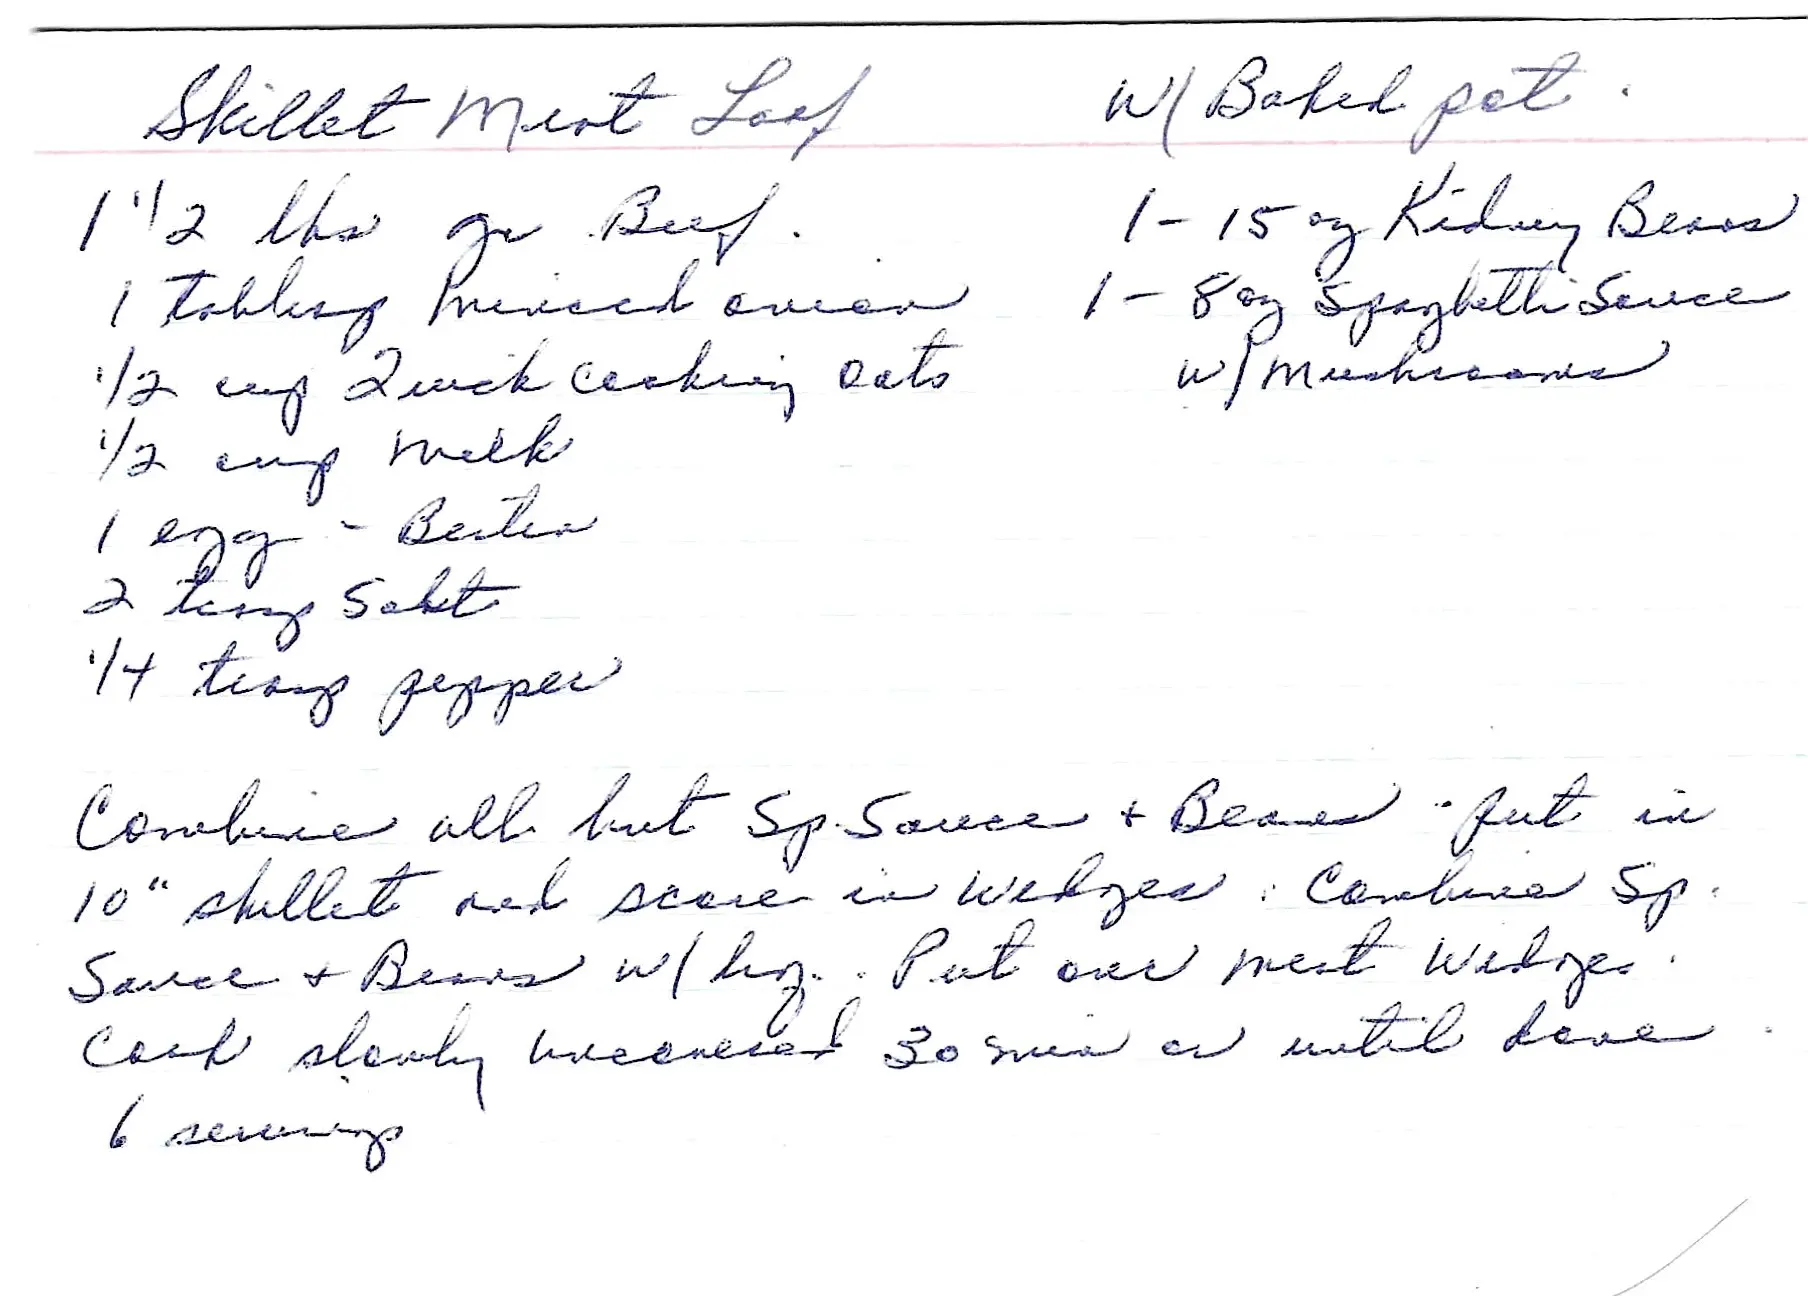 Skillet Meat Loaf w/ Baked pot.
1 1/2 lbs gr Beef.
1 tablesp minced onion
1/2 cup Quick cooking oats
1/2 cup milk
1 egg - Beaten
2 teasp Salt
1/4 teasp pepper
1 - 15 oz Kidney Beans
1 - 8 oz Spaghetti Sauce
w/ mushrooms
Combine all but Sp. Sauce + Beans - put in
10" skillet and score in wedges. Combine Sp.
Sauce + Beans w/ liq. Put over meat wedges.
Cook slowly uncovered 30 min or until done.
6 servings